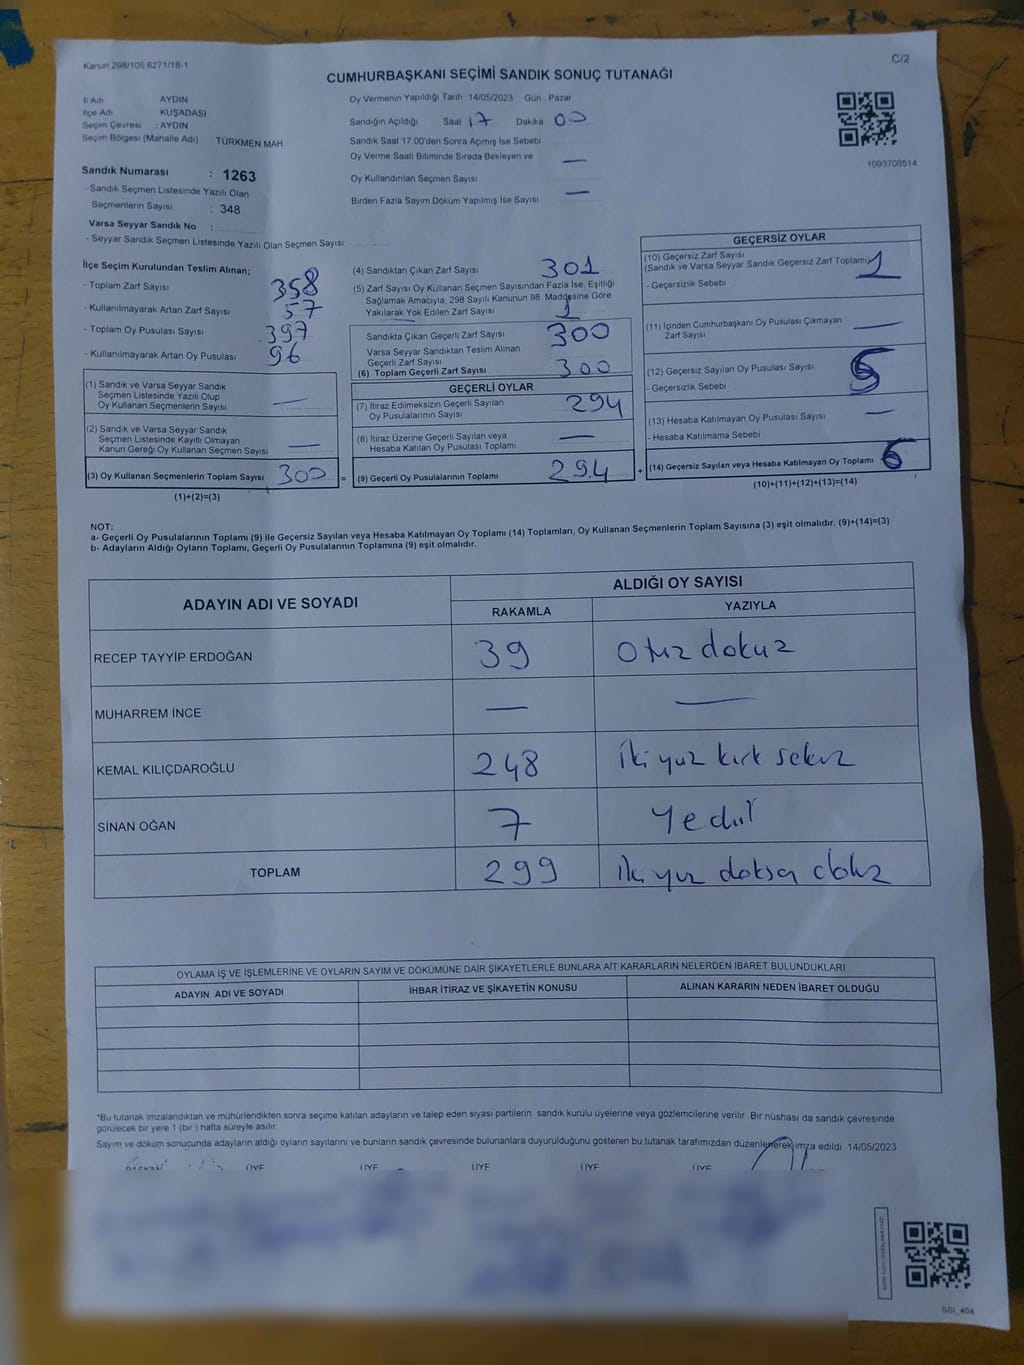 Kanun 298/105 6271/18-1
C/2
CUMHURBAŞKANI SEÇİMİ SANDIK SONUÇ TUTANAĞI
İl Adı AYDIN
İlçe Adı KUŞADASI
Seçim Çevresi : AYDIN
Seçim Bölgesi (Mahalle Adı) TÜRKMEN MAH.
Oy Vermenin Yapıldığı Tarih :14/05/2023 Gün : Pazar
Sandığın Açıldığı Saat 17 Dakika 00
Sandık Saat 17.00'den Sonra Açımış İse Sebebi
Oy Verme Saati Bitiminde Sırada Bekleyen ve —
Oy Kullandırılan Seçmen Sayısı
Birden Fazla Sayım Döküm Yapılmış İse Sayısı —
1093708514
Sandık Numarası : 1263
- Sandık Seçmen Listesinde Yazılı Olan
Seçmenlerin Sayısı : 348
Varsa Seyyar Sandık No :
- Seyyar Sandık Seçmen Listesinde Yazılı Olan Seçmen Sayısı:
İlçe Seçim Kurulundan Teslim Alınan;
- Toplam Zarf Sayısı 358
- Kullanılmayarak Artan Zarf Sayısı : 57
- Toplam Oy Pusulası Sayısı 397
- Kullanılmayarak Artan Oy Pusulası 96
(1) Sandık ve Varsa Seyyar Sandık
Seçmen Listesinde Yazılı Olup
Oy Kullanan Seçmenlerin Sayısı —
(2) Sandık ve Varsa Seyyar Sandık
Seçmen Listesinde Kayıtlı Olmayan
Kanun Gereği Oy Kullanan Seçmen Sayısı —
(3) Oy Kullanan Seçmenlerin Toplam Sayısı 300 =
(1)+(2)=(3)
(4) Sandıktan Çıkan Zarf Sayısı 301
(5) Zarf Sayısı Oy Kullanan Seçmen Sayısından Fazla İse, Eşitliği
Sağlamak Amacıyla, 298 Sayılı Kanunun 98. Maddesine Göre
Yakılarak Yok Edilen Zarf Sayısı 1
Sandıkta Çıkan Geçerli Zarf Sayısı 300
Varsa Seyyar Sandıktan Teslim Alınan
Geçerli Zarf Sayısı
(6) Toplam Geçerli Zarf Sayısı 300
GEÇERLİ OYLAR
(7) İtiraz Edilmeksizin Geçerli Sayılan
Oy Pusulalarının Sayısı 294
(8) İtiraz Üzerine Geçerli Sayılan veya
Hesaba Katılan Oy Pusulası Toplamı —
(9) Geçerli Oy Pusulalarının Toplamı 294 +
GEÇERSİZ OYLAR
(10) Geçersiz Zarf Sayısı
(Sandık ve Varsa Seyyar Sandık Geçersiz Zarf Toplamı) 1
- Geçersizlik Sebebi :
(11) İçinden Cumhurbaşkanı Oy Pusulası Çıkmayan
Zarf Sayısı —
(12) Geçersiz Sayılan Oy Pusulası Sayısı 5
- Geçersizlik Sebebi :
(13) Hesaba Katılmayan Oy Pusulası Sayısı —
- Hesaba Katılmama Sebebi :
(14) Geçersiz Sayılan veya Hesaba Katılmayan Oy Toplamı 6
(10)+(11)+(12)+(13)=(14)
NOT:
a- Geçerli Oy Pusulalarının Toplamı (9) ile Geçersiz Sayılan veya Hesaba Katılmayan Oy Toplamı (14) Toplamları, Oy Kullanan Seçmenlerin Toplam Sayısına (3) eşit olmalıdır. (9)+(14)=(3)
b- Adayların Aldığı Oyların Toplamı, Geçerli Oy Pusulalarının Toplamına (9) eşit olmalıdır.
ADAYIN ADI VE SOYADI
ALDIĞI OY SAYISI
RAKAMLA YAZIYLA
RECEP TAYYİP ERDOĞAN 39 Otuz dokuz
MUHARREM İNCE — —
KEMAL KILIÇDAROĞLU 248 İki yüz kırk sekiz
SİNAN OĞAN 7 Yedi
TOPLAM 299 iki yuz
OYLAMA İŞ VE İŞLEMLERİNE VE OYLARIN SAYIM VE DÖKÜMÜNE DAİR ŞİKAYETLERLE BUNLARA AİT KARARLARIN NELERDEN İBARET BULUNDUKLARI
ADAYIN ADI VE SOYADI İHBAR İTİRAZ VE ŞİKAYETİN KONUSU ALINAN KARARIN NEDEN İBARET OLDUĞU
*Bu tutanak imzalandıktan ve mühürlendikten sonra seçime katılan adayların ve talep eden siyasi partilerin sandık kurulu üyelerine veya gözlemcilerine verilir. Bir nüshası da sandık çevresinde
görülecek bir yere 1 (bir) hafta süreyle asılır.
Sayım ve döküm sonucunda adayların aldığı oyların sayılarını ve bunların sandık çevresinde bulunanlara duyurulduğunu gösteren bu tutanak tarafımızdan düzenlenerek imza edildi. 14/05/2023
BAŞKAN ÜYE ÜYE ÜYE ÜYE ÜYE
SBI_404